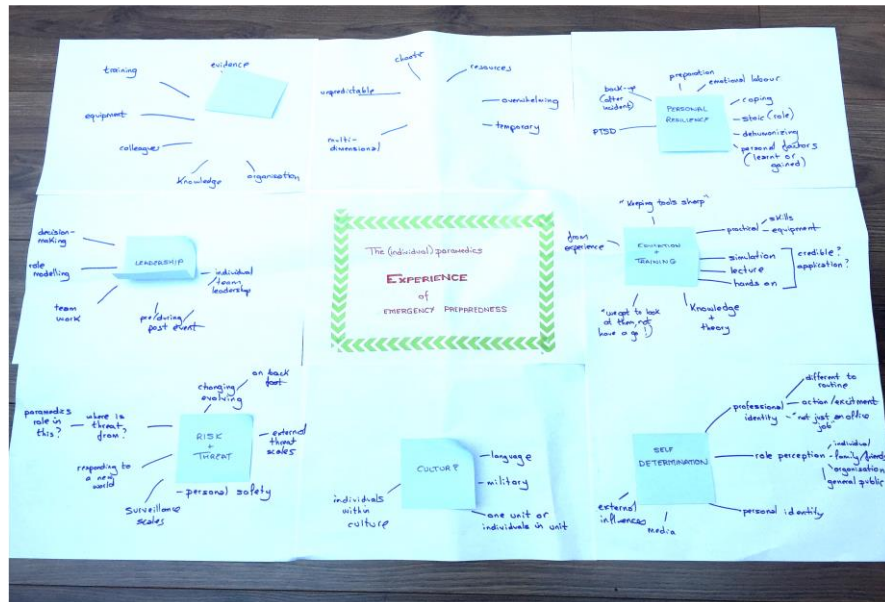 training
evidence
equipment
colleagues
Knowledge
organisation
chaotic
resources
unpredictable
overwhelming
temporary
multi-
dimensional
preparation
emotional labour
back-up
(after
incident)
PERSONAL
RESILIENCE
coping
stoic (role)
PTSD
dehumanizing
personal factors
(learnt or
gained)
decision-
making
LEADERSHIP
role modelling
individual
team
leadership
team
work
pre/during/
post event
The (individual) paramedics
EXPERIENCE
of
EMERGENCY PREPAREDNESS
"Keeping tools sharp"
from
experience
EDUCATION
+
TRAINING
practical
skills
equipment
simulation
lecture
hands on
credible?
application?
at them, not
have a go!)
Knowledge
+
theory
on back
foot
changing
evolving
paramedics
role in
this?
where is
threat
from?
RISK
+
THREAT
external
threat
scales
responding to
a new
world
personal safety
surveillance
scales
language
military
individuals
within
culture
one unit or
individuals in unit
different to
routine
professional
identity
action/excitment
"not just an office
job"
SELF
DETERMINATION
role perception
individual
family/friends
organisation
general public
external
influences
media
personal identity